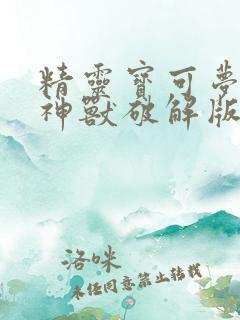 精靈寶可夢
神獸破解版
洛咪
未任同意禁止转载